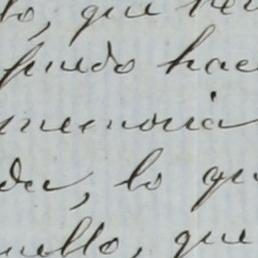 to, que ve
puedo hac
memoria
da, lo qu
uello, que